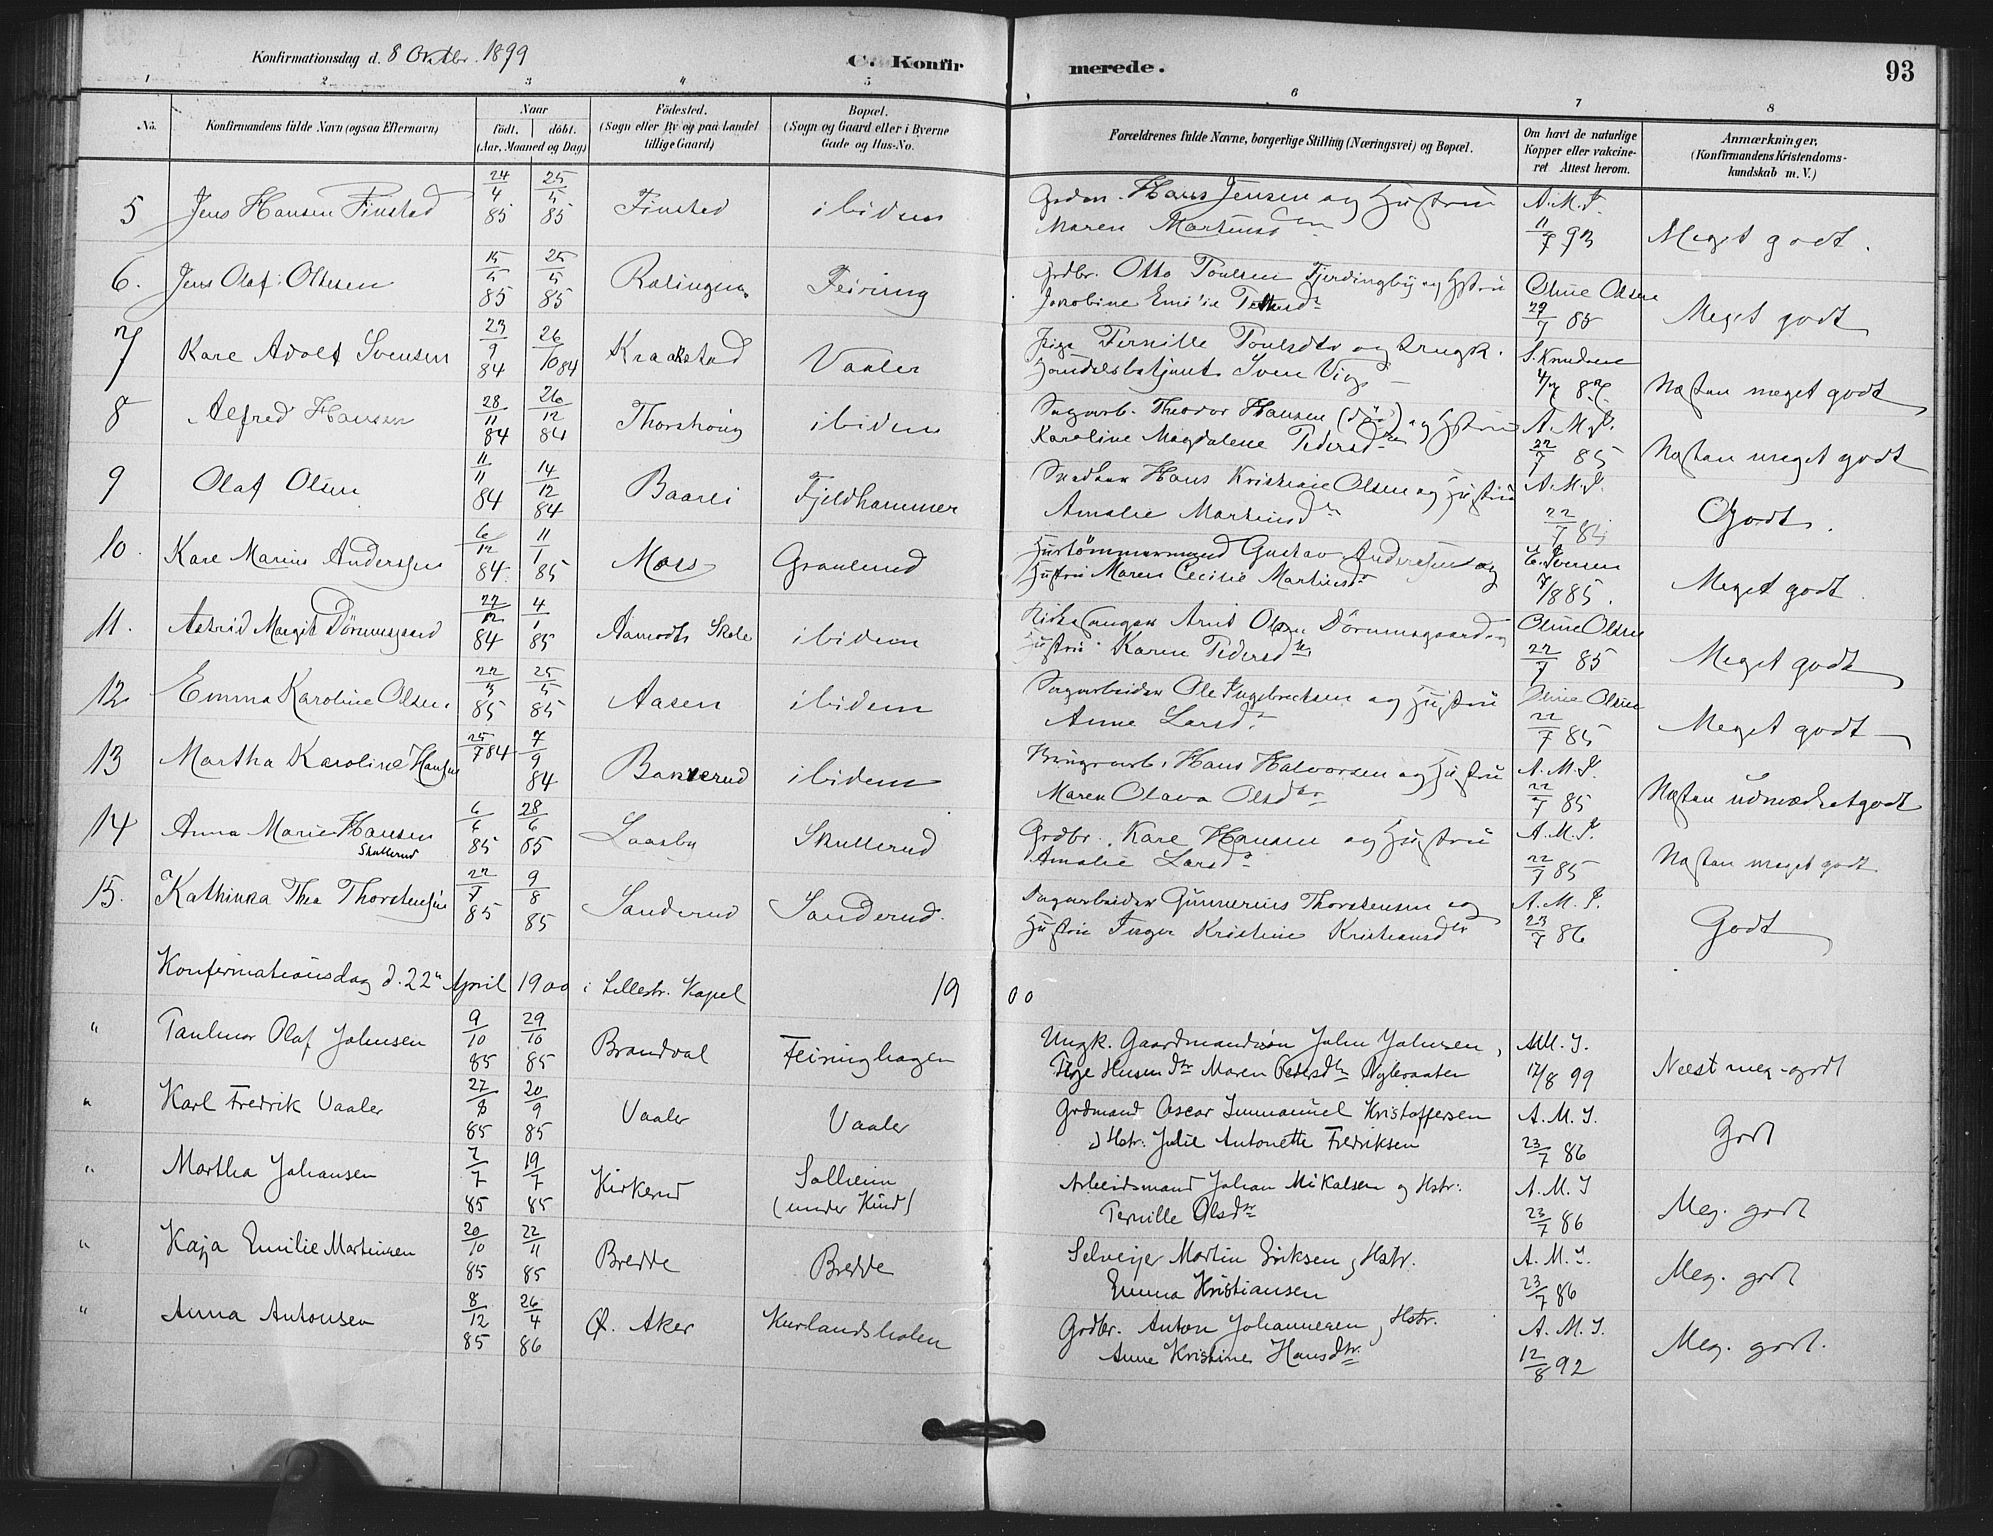 Konfirmationsdag d. 8 Oktbr. 1899
C. Konfirmerede.
93
1 2 3 4 5 6 7 8
No.
Konfirmandens fulde Navn (ogsaa Efternavn)
Naar
født. døbt.
(Aar, Maaned og Dag)
Fødested.
(Sogn eller By og paa Landet
tillige Gaard)
Bopæl.
(Sogn og Gaard eller i Byerne
Gade og Hus-No.
Forældrenes fulde Navne, borgerlige Stilling (Næringsvei) og Bopæl.
Om havt de naturlige
Kopper eller vakcine-
ret Attest herom.
Anmærkninger.
(Konfirmandens Kristendoms-
kundskab m. V.)
5 Jens Hansen Finstad 24/4 85 25/5 85 Finstad ibidem Hans Jensen og Hustru
Maren Martinsdtr A.M.I. 11/7 93 Meget godt.
6. Jens Olaf Ottesen 15/5 85 25/5 85 Ralingen Feiring Grdbr. Otto Poulsen Fjerdingby og Hstru
Jakobine Emilie Oline Olsen 29/7 85 Meget godt
7 Karl Adolf Svensen 23/9 84 26/10 84 Kraakstad Vaaler Pige Pernille Poulsdtr og Ungk.
Handelsbetjent Sven S. Knudsen Næsten meget godt
8 Alfred Hansen 28/11 84 26/12 84 Thorshoug ibidem Sagarb. Theodor Hansen (død) og Hstru
Karoline Magdalene Pedersdtr A.M.I. 22/7 85 Næsten meget godt
9 Olaf Olsen 11/11 84 14/12 84 Baarli Fjeldhammer Hans Kristian Olsen og Hustru
Amalie Martinsdtr A.M.I. 22/7 Godt.
10. Karl Marius Anderssen 6/12 84. 11/1 85 Moss Granlund Hustømmermand Gustav Anderssen og
Hustru Maren Cecilie Martinsdtr E. Iversen 7/8 85. Meget godt.
11. Astrid Margit Dömmegaard 22/12 84 4/1 85 Aamodts Skole ibidem Kirkesanger Arnt Olsen Dömmegaard og
Hustru Karen Pedersdtr Oline Olsen 22/7 85 Meget godt
12 Emma Karoline Olsen 22/3 85 25/5 85 Aasen ibidem Sagarbeider Ole Ingebretsen og Hustru
Anne Larsdtr Oline Olsen 22/7 85 Meget godt
13 Martha Karoline Hansen 25/7 84 7/9 84 Bakkerud ibidem Brugsarb. Hans Halvorsen og Hustru
Maren Olava Olsdtr A.M.I. 22/7 85 Næsten udmærketgodt
14 Anna Marie Hansen
Skullerud 6/6 85 28/6 85 Laasby Skullerud Grdbr. Karl Hansen og Hustru
Amalie Larsdtr A.M.I. 22/7 85 Næsten meget godt
15. Kathinka Thea Thorstensen 22/7 85 9/8 85 Sanderud Sanderud. Sagarbeider Gunnerius Thorstensen og
Hustru Inger Kristine Kristiansdtr A.M.I. 23/7 86 Godt
Konfirmationsdag d. 22n April 1900 i Lillestr. Kapel 19 00
" Paulmar Olaf Johnsen 9/10 85 29/10 85 Brandval Feiringhagen Ungk. Gaardmandssøn John Johnsen,
Pige Maren Pedersdtr A.M.I. 17/8 99 Næst meg. godt
" Karl Fredrik Vaaler 27/8 85 20/9 85 Vaaler Vaaler Grdmand Oscar Immanuel Kristoffersen
og Hstr. Julie Antonette Fredriksen A.M.I. 23/7 86 Godt
" Martha Johansen 2/7 85 19/7 85 Kirkerud Solheim
(under Hund) Arbeidsmand Johan Mikalsen og Hstr:
Pernille Olsdtr A.M.I 23/7 86 Meg. godt
" Kaja Emilie Martinsen 20/10 85 22/11 85 Bredde Bredde Selveier Martin Eriksen og Hstr.
Emma Kristiansen A.M.I. 23/7 86 Meg. godt
" Anna Antonsen 8/12 85 26/4 86 Ø. Aker Kurlandsholen Grdbr. Anton Johannesen og Hstr.
Anne Kristine Hansdtr. A.M.I. 12/8 92 Meg. godt.